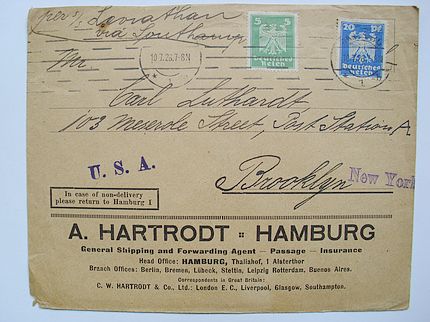 per s/s Leviathan
via Southampton
10.7.26.7-8N
5 5
Deutsches
Reich
20 Pf
Deutsches
Reich
Carl Luthardt
103 Meserole Street, Post Station A
U. S. A.
Brooklyn New York
In case of non-delivery
please return to Hamburg 1
A. HARTRODT :: HAMBURG
General Shipping and Forwarding Agent — Passage — Insurance
Head Office: HAMBURG, Thaliahof, 1 Alsterthor
Branch Offices: Berlin, Bremen, Lübeck, Stettin, Leipzig Rotterdam, Buenos Aires.
Correspondents in Great Britain:
C. W. HARTRODT & Co., Ltd.: London E. C., Liverpool, Glasgow, Southampton.